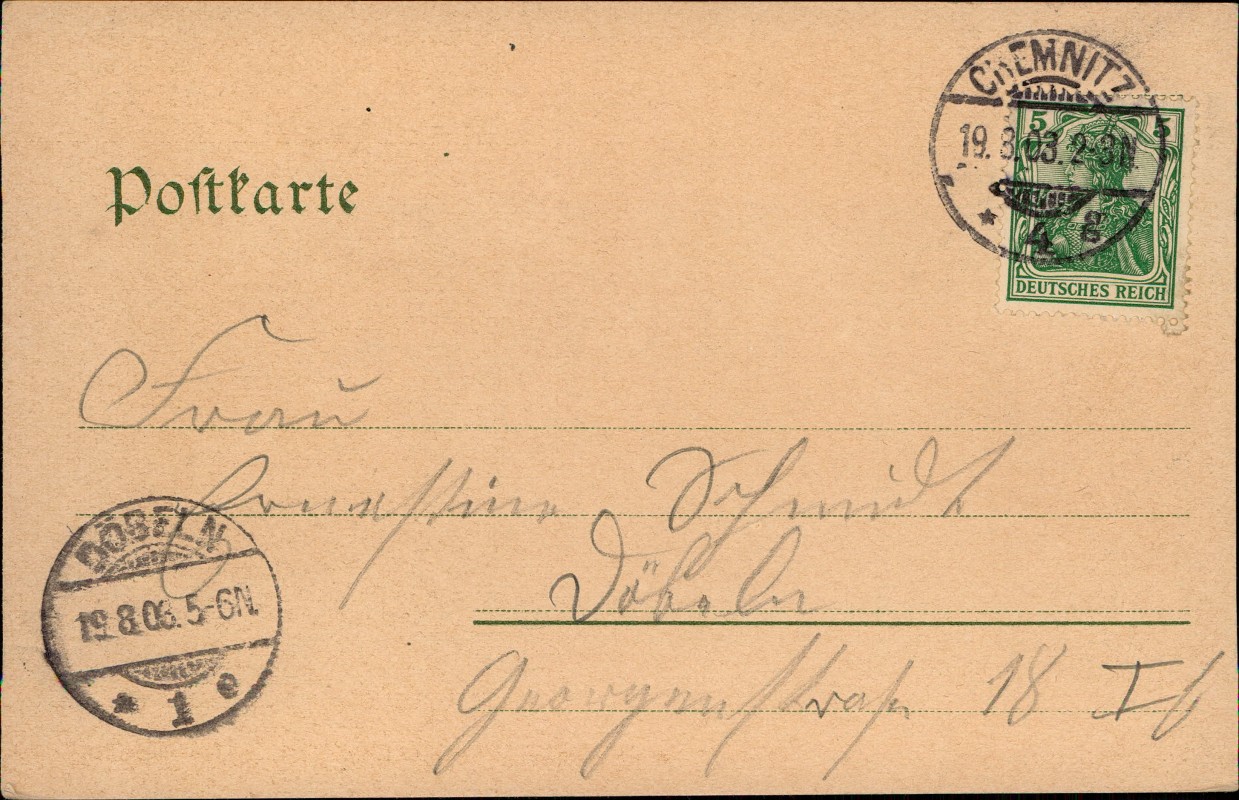 CHEMNITZ
19.8.03. 2-3N.
* 4 g
5 5
DEUTSCHES REICH
Poſtkarte
Frau
Ernestine Schmidt
Döbeln
Georgenstraße 18 I
DÖBELN
19.8.03. 5-6N.
* 1 e